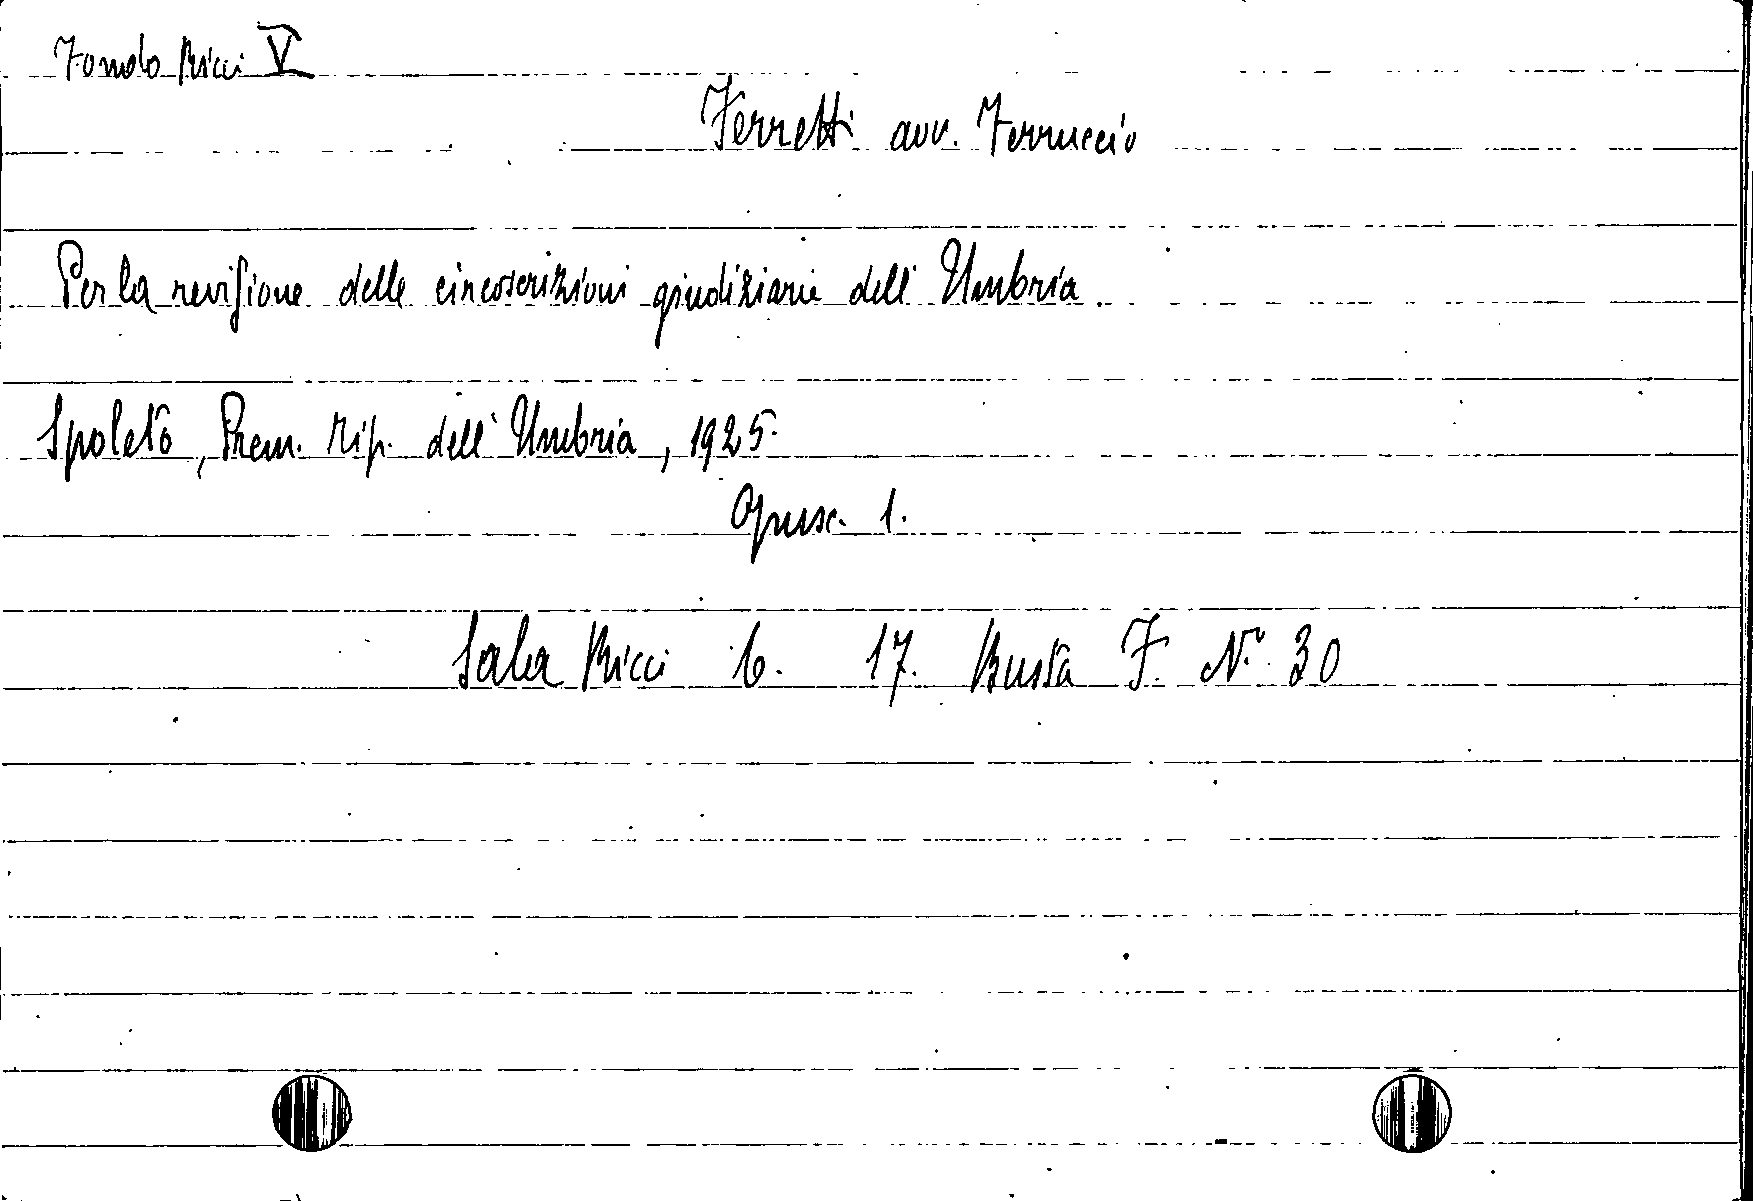 Fondo Ricci V
Ferretti avv. Ferruccio
Per la revisione delle circoscrizioni giudiziarie dell'Umbria.
Spoleto, Prem. Tip. dell'Umbria, 1925.
Opusc. 1.
Sala Ricci 6. 17. Busta F. N. 30